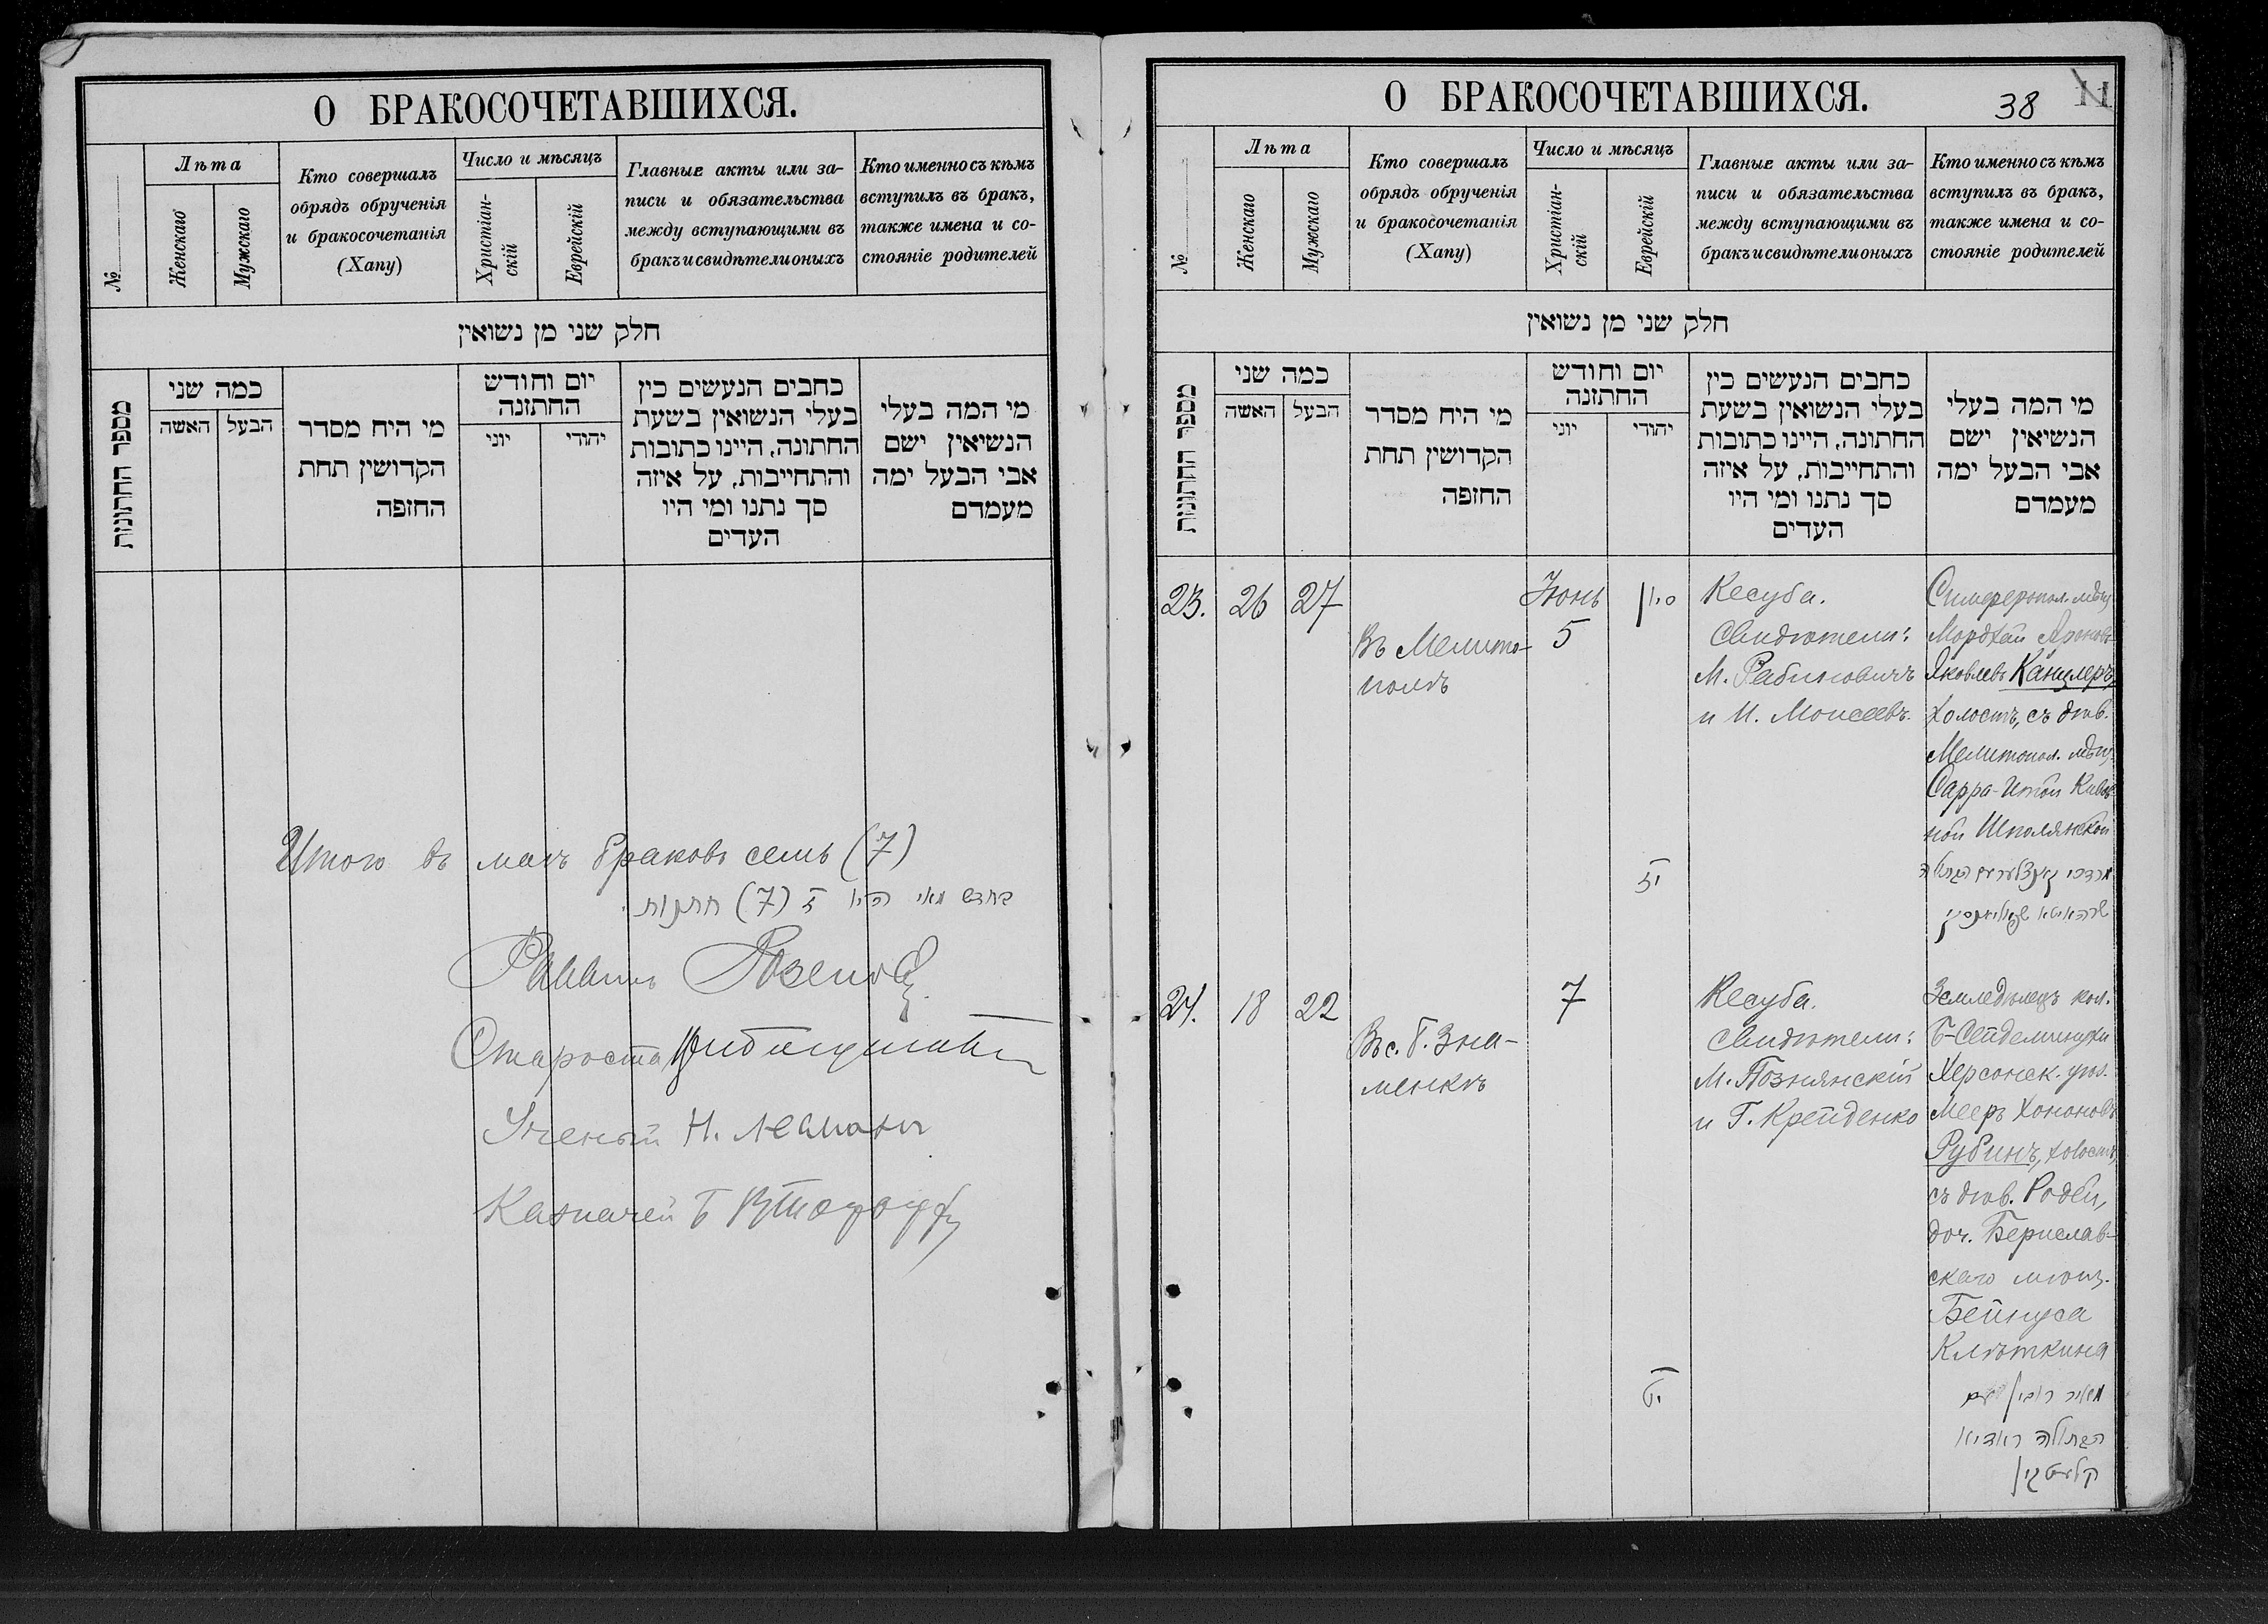 О БРАКОСОЧЕТАВШИХСЯ.
№
Лѣта
Женскаго
Мужскаго
Кто совершалъ
обрядъ обрученія
и бракосочетанія
(Хапу)
Число и мѣсяцъ
Христіан-
скій
Еврейскій
Главные акты или за-
писи и обязательства
между вступающими въ
бракъ и свидѣтели оныхъ
Кто именно съ кѣмъ
вступилъ въ бракъ,
также имена и со-
стояніе родителей
חלק שני מן נשואין
מספר החתונות
כמה שני
האשה
הבעל
מי היח מסדר
הקדושין תחת
החופה
יום וחודש
החתונה
יוני
יהודי
כחבים הנעשים כין
בעלי הנשואין בשעת
החתונה, היינו כתובות
והתחייבות, על איזה
סך נתנו ומי היו
העדים
מי המה בעלי
הנשיאין ישם
אבי הבעל ימה
מעמדם
Итого въ маѣ браковъ семь (7)
בחדש מאי היו ז (7) חתונות
Раввинъ
Староста
Ученый
Казначей Б
О БРАКОСОЧЕТАВШИХСЯ.
38
11
№
Лѣта
Женскаго
Мужскаго
Кто совершалъ
обрядъ обрученія
и бракосочетанія
(Хапу)
Число и мѣсяцъ
Христіан-
скій
Еврейскій
Главные акты или за-
писи и обязательства
между вступающими въ
бракъ и свидѣтели оныхъ
Кто именно съ кѣмъ
вступилъ въ бракъ,
также имена и со-
стояніе родителей
חלק שני מן נשואין
מספר החתונות
כמה שני
האשה
הבעל
מי היח מסדר
הקדושין תחת
החופה
יום וחודש
החתונה
יוני
יהודי
כחבים הנעשים כין
בעלי הנשואין בשעת
החתונה, היינו כתובות
והתחייבות, על איזה
סך נתנו ומי היו
העדים
מי המה בעלי
הנשיאין ישם
אבי הבעל ימה
מעמדם
23. 26 27
Въ Мелито-
полѣ
Іюнь
5
סיון
יז
Кесуба.
Свидѣтели:
М. Рабиновичъ
и И. Моисеевъ.
Симферопол. мѣщ.
Мордхай Ароновъ-
Яковлевъ Канцлеръ,
холостъ, съ дѣв.
Мелитопол. мѣщ.
Сарра-Итой
ной Шполянской
מרדכי קאנצלער עם הבתולה
שרה איטא שפאליאנסקי
24. 18 22
Въ с. Б. Зна-
менкѣ
7
יט
Кесуба.
Свидѣтели:
М. Познянскій
и Г. Крейденко
Земледѣлецъ кол.
Б-Сейдеминухи
Херсонск. уѣз.
Мееръ Хононовъ
Рубинъ, холостъ,
съ дѣв. Родей,
доч. Берислав-
скаго мѣщ.
Бейнуса
Клѣткина
מאיר רובין עם
הבתולה ראדיא
קלעטקין